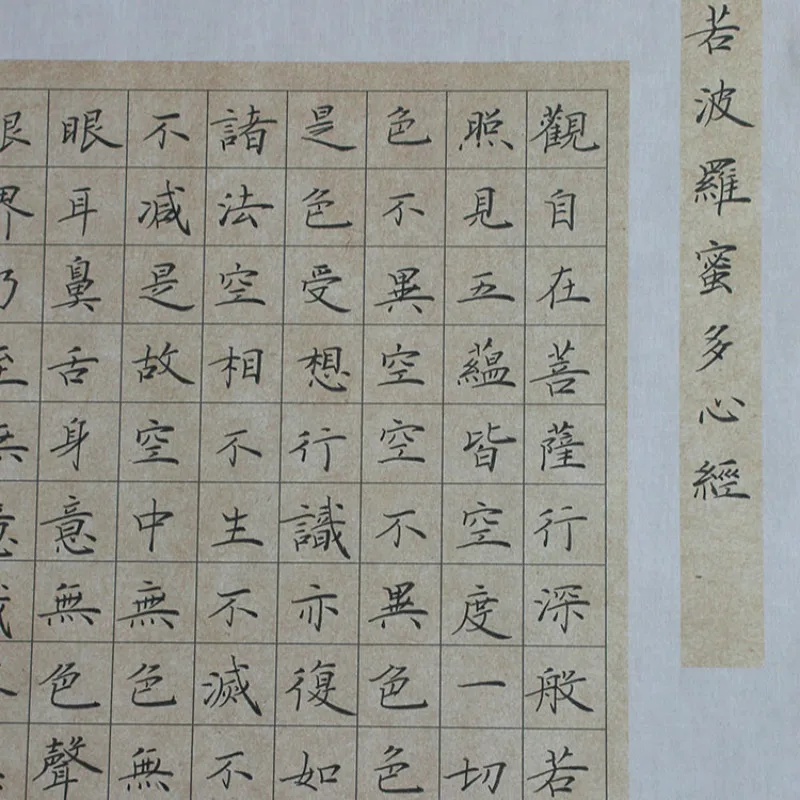 若波羅蜜多心經
觀自在菩薩行深般若
照見五蘊皆空度一切
色不異空空不異色色
是色受想行識亦復如
諸法空相不生不滅不
不減是故空中無色無
眼耳鼻舌身意無色聲
眼界乃至無意